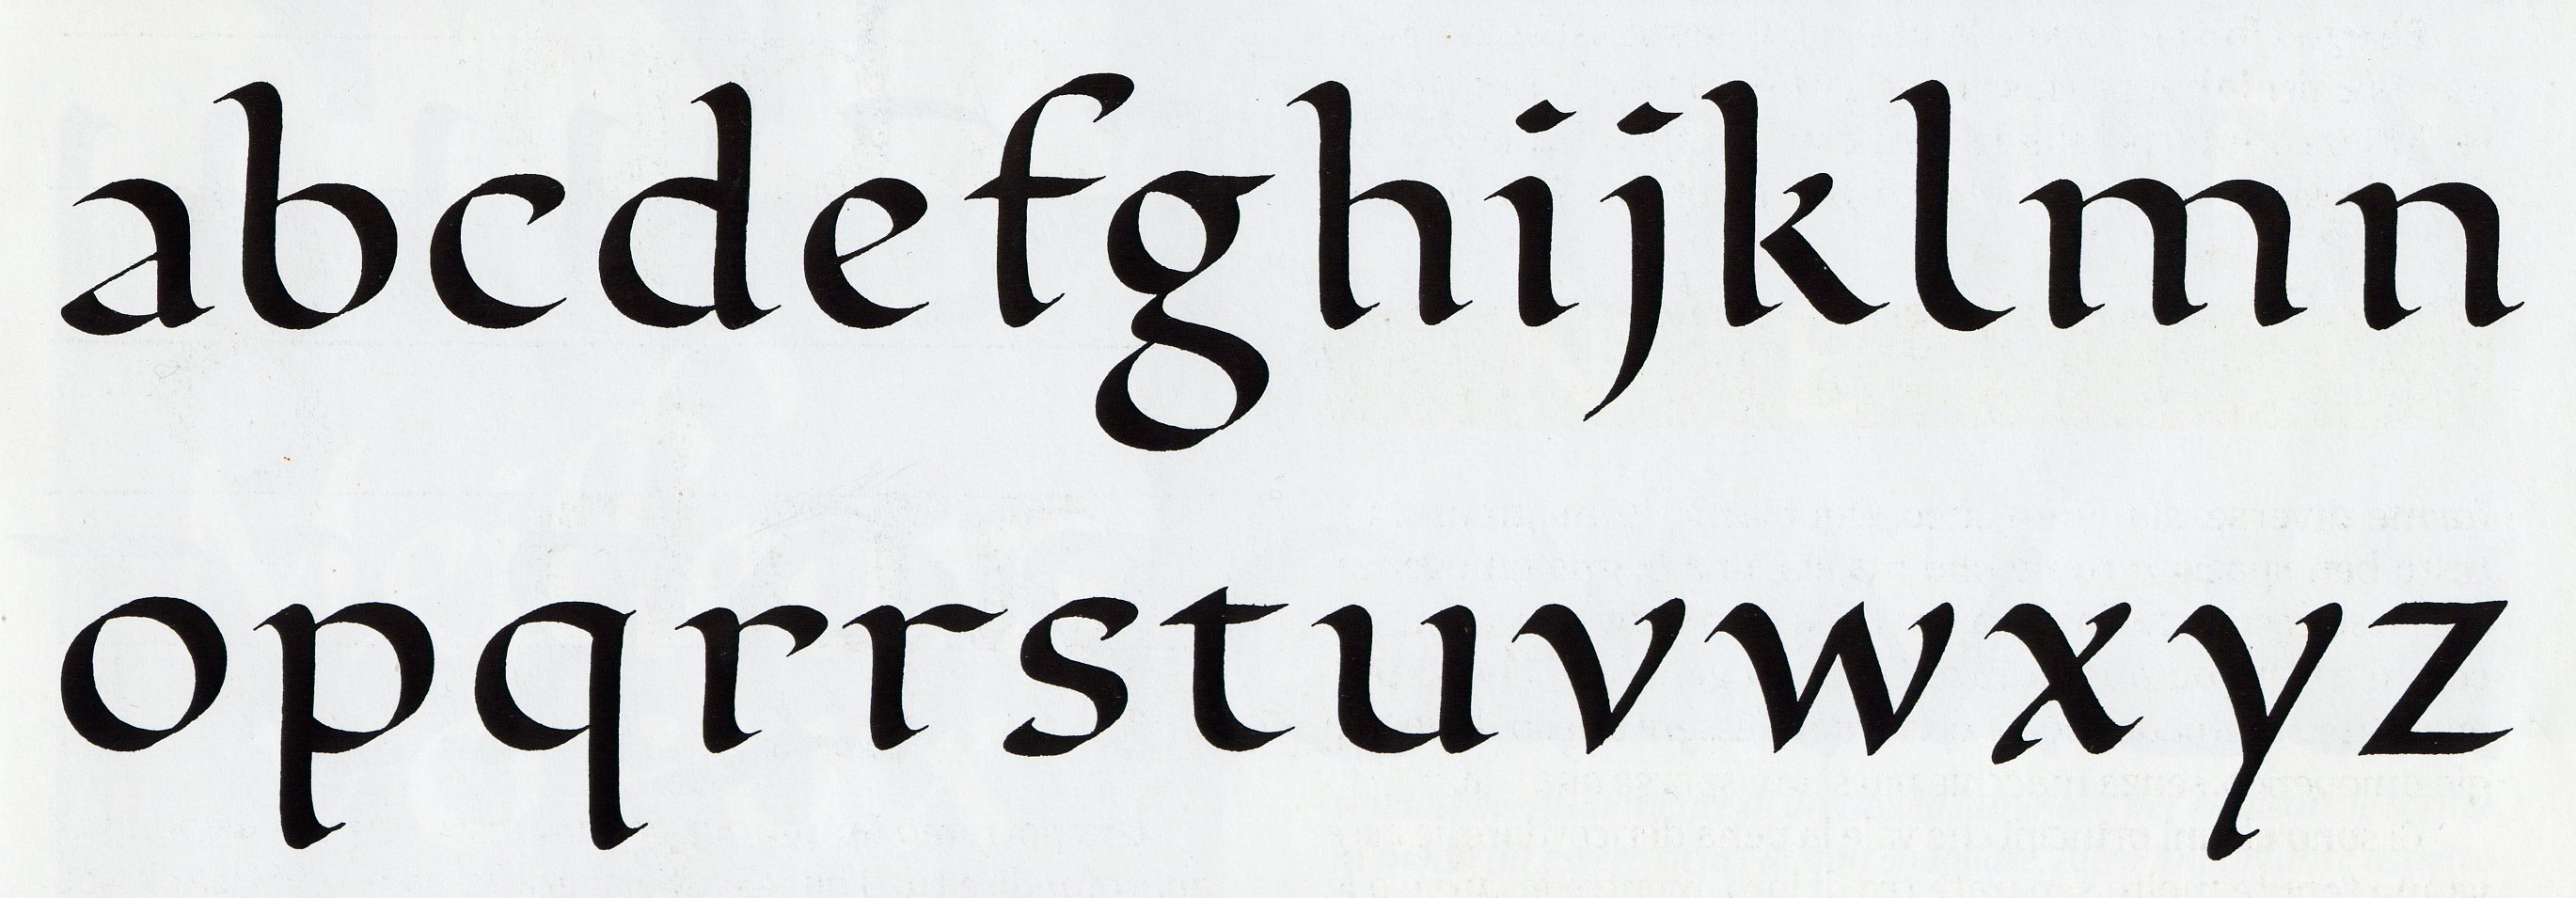 abcdefghijklmn
opqrrstuvwxyz